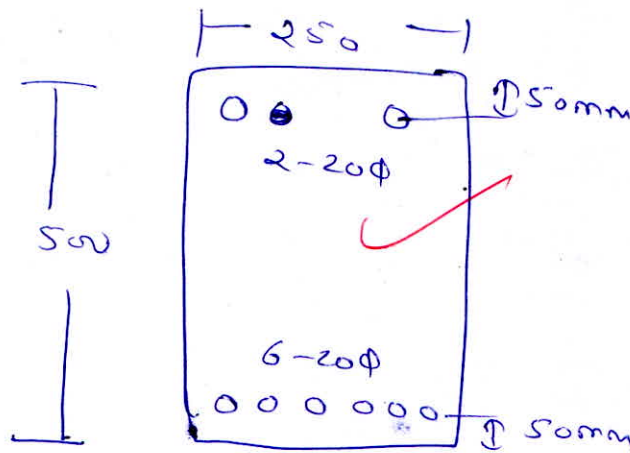 250
50mm
2-20Φ
500
6-20Φ
50mm